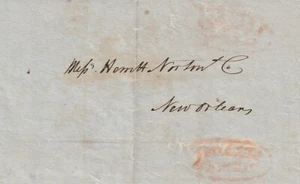 Mess^rs. Hewitt Norton & Co
New Orleans